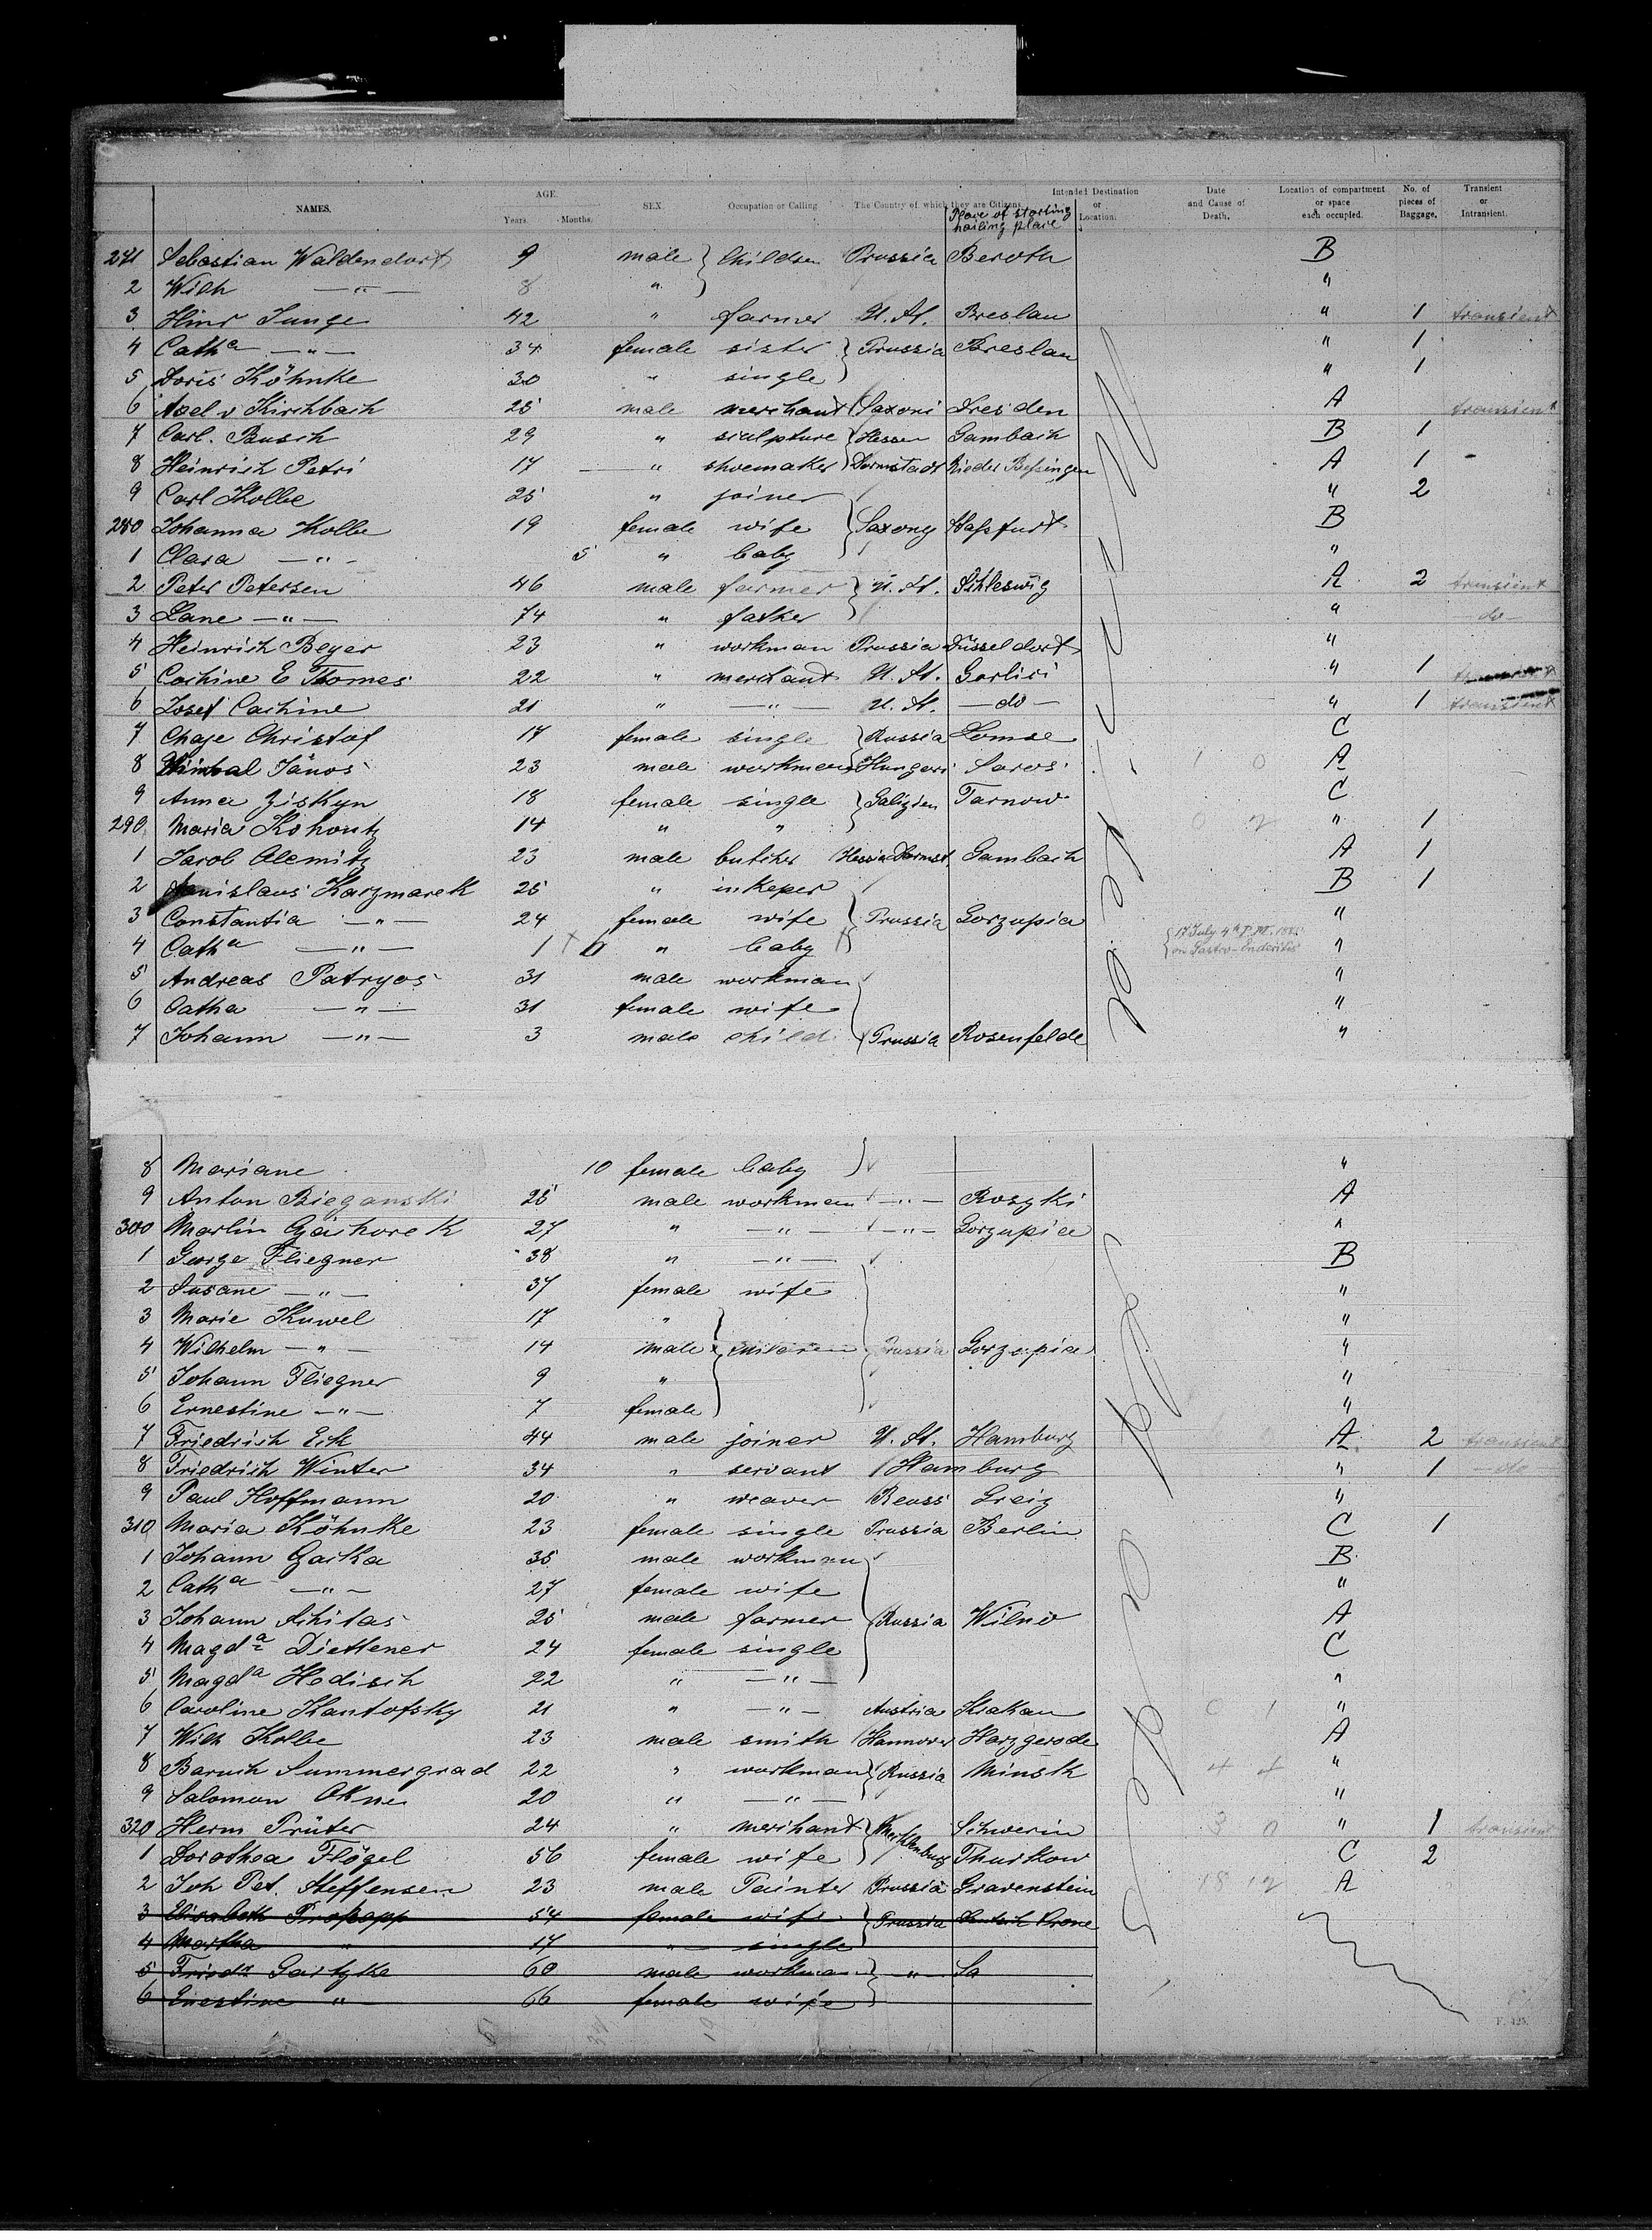 NAMES. AGE. Years. Months. SEX. Occupation or Calling The Country of which they are Citizens. Place of starting hailing place Intended Destination or Location. Date and Cause of Death. Location of compartment or space each occupied. No. of pieces of Baggage. Transient or Intransient.
271 Sebastian Waldendorf 9 male } Children Prussia Beroth B
2 Wilh —"— 8 " "
3 Hinr Junge 42 " farmer U. St. Breslau " 1 transient
4 Catha —"— 34 female sister } Prussia Breslau " 1
5 Doris Köhnke 30 " single " 1
6 Axel v Kirchbach 25 male merchant Saxoni Dresden A transient
7 Carl. Busch 29 " sculpture Hessen Gambach B 1
8 Heinrich Petri 17 — " shoemaker Darmstadt Nieder Bessingen A 1 -
9 Carl Kolbe 25 " joiner " 2
280 Johanna Kolbe 19 female wife Saxony Hassfurt B
1 Clara —"— 5 " baby "
2 Peter Petersen 46 male farmer } U. St. Schleswig A 2 transient
3 Lane —"— 74 " father " do-
4 Heinrich Beyer 23 " workman Prussia Düsseldorf "
5 Cachine E Thomes 22 " merchant U. St. Gorlici " 1 transient
6 Josef Cachine 21 " —"— U. St. —do— " 1 transient
7 Chaje Christof 17 female single } Russia Lomse C
8 János 23 male workman Hungari Saros 1 0 A
9 Anna Ziskyn 18 female single } Galizien Tarnow C
290 Maria Kohoutz 14 " " 0 2 " 1
1 Jacob Alemitz 23 male butcher Hessia Darmst. Gambach A 1
2 Stanislaus Karzmarek 25 " inkeper B 1
3 Constantia —"— 24 female wife } Prussia Gorzupia "
4 Catha —"— 1 + 6 " baby + { 17 July 4h P.M. on Gastro-Enderitis "
5 Andreas Patryas 31 male workman "
6 Catha —"— 31 female wife "
7 Johann —"— 3 male child Prussia Rosenfelde "
8 Mariane 10 female baby "
9 Anton Bieganski 25 male workman —"— Roszki A
300 Martin Gächorek 27 " —"— —"— Gorzupia "
1 George Fliegner 38 " —"— B
2 Susane —"— 37 female wife "
3 Marie Kuwel 17 " "
4 Wilhelm —"— 14 male } children Prussia Gorzupia "
5 Johann Fliegner 9 " "
6 Ernestine —"— 7 female "
7 Friedrich Eck 44 male joiner U. St. Hamburg A 2 transient
8 Friedrich Winter 34 " servant Hamburg " 1 —do—
9 Paul Hoffmann 20 " weaver Reuss Greiz "
310 Maria Köhnke 23 female single Prussia Berlin C 1
1 Johann Gaika 35 male workman B
2 Catha —"— 27 female wife "
3 Johann Schitas 25 male farmer } Russia Wilno A
4 Magda Diettener 24 female single C
5 Magda Hodisch 22 " —"— "
6 Caroline Kantofsky 21 " —"— Austria Krakau 0 1 "
7 Wilh Kolbe 23 male smith Hannover Harzgerode A
8 Baruch Summergrad 22 " workman } Russia Minsk 4 4 "
9 Salomon Okne 20 " —"— "
320 Herm Prüter 24 " merchant } Mecklenburg Schwerin 3 0 " 1 transient
1 Dorothea Flögel 56 female wife Thurkow C 2
2 Joh Pet. Steffensen 23 male Painter Prussia Gravenstein 18 12 A
3 Elisabeth Prokopp 54 female wife } Prussia Deutsch Crone
4 Martha " 17 " single
5 Friedr Gartzke 60 male workman } —"— Sa
6 Enestine " 66 female wife
F. 125.